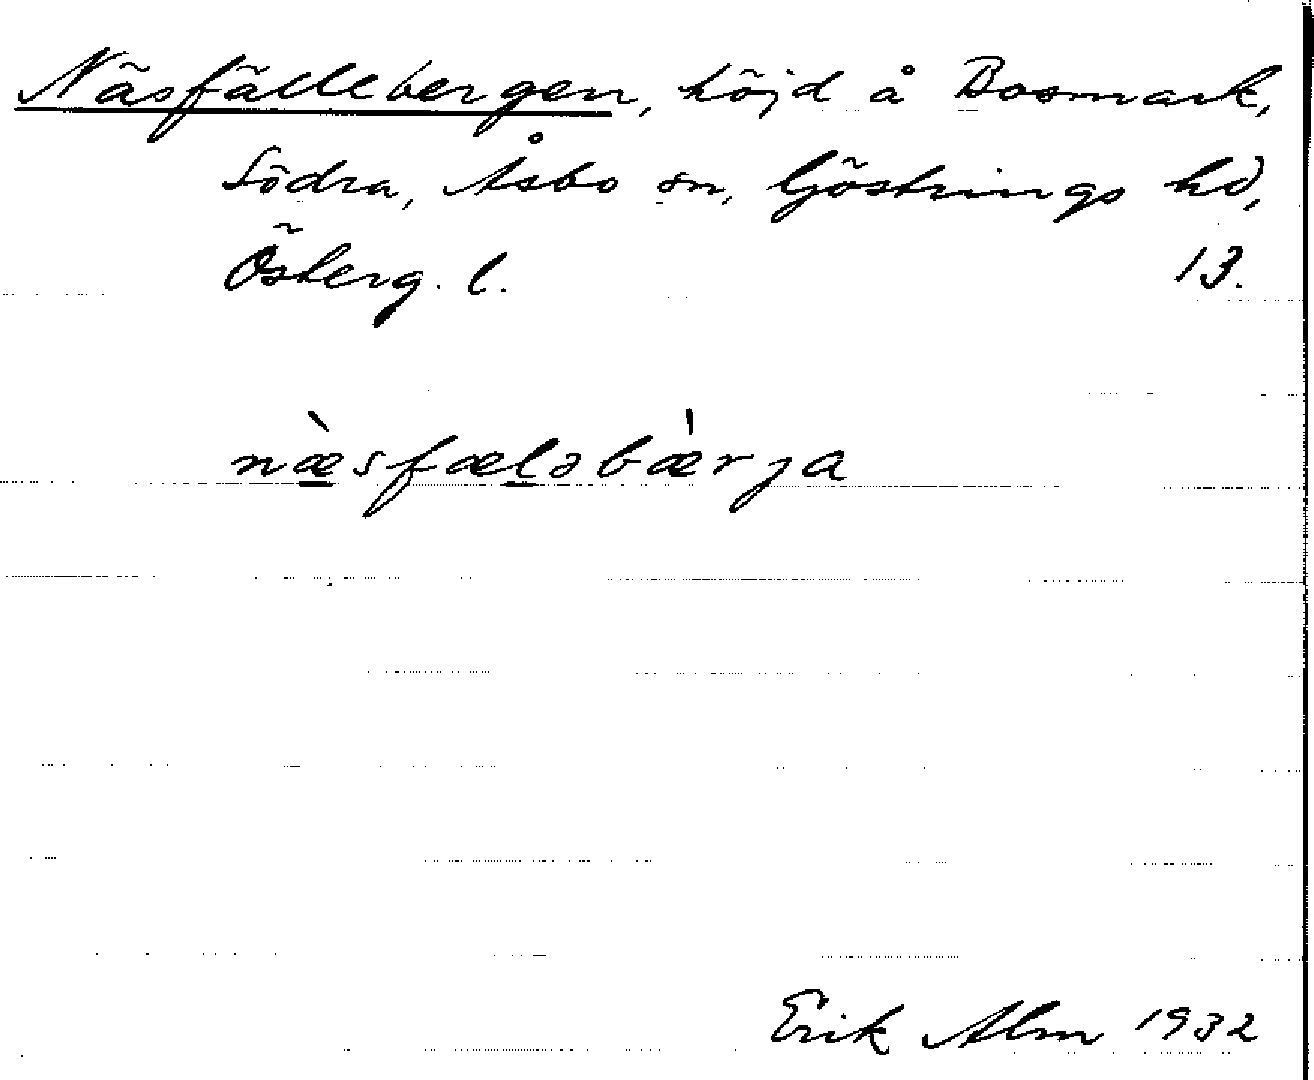 Näsfällebergen, höjd å Bosmark,
Södra, Åsbo sn, Göstrings hd,
Österg. l. 13.
næ̀sfælǝbæ̀rja
Erik Alm 1932